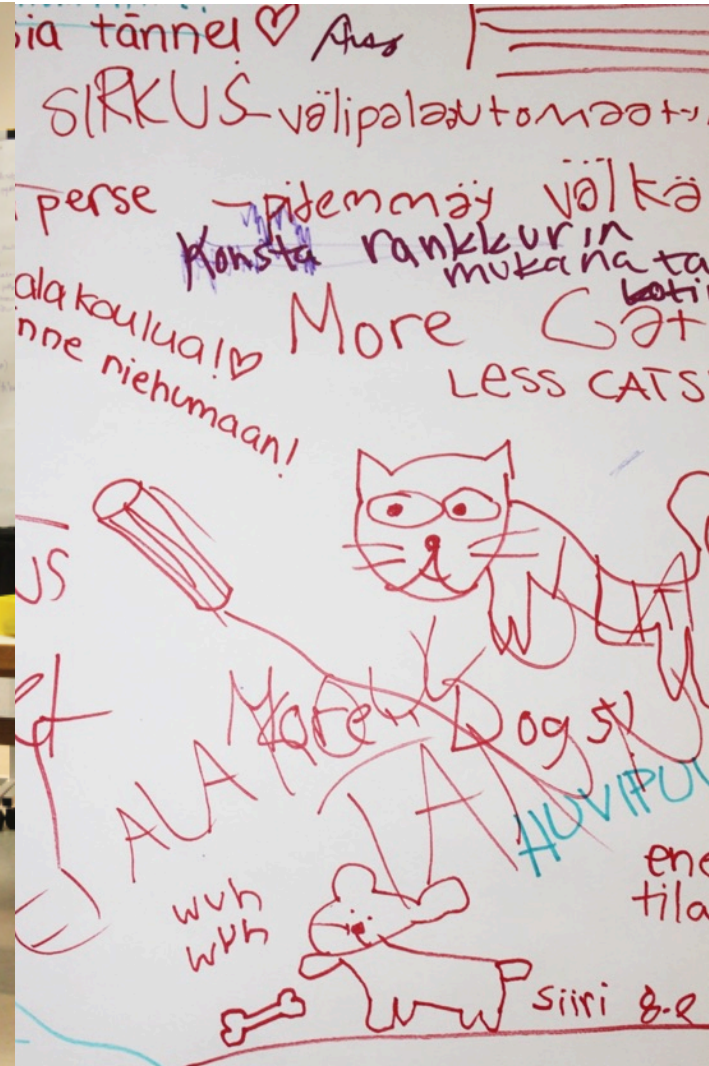 sia tänne! ♡
SIRKUS välipalaautomaatti
perse - pidemmäy välkä
Konsta rankkurin
mukana ta
koti
alakoulua!♡
nne riehumaan!
More Cat
Less CATS
US
More Dogs!
ALA
HUVIPU
ene
tila
wuh
wuh
siiri 8.e